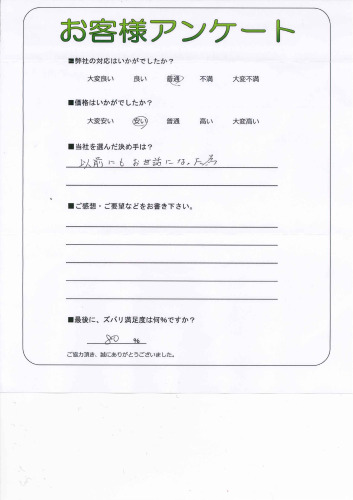 お客様アンケート
■弊社の対応はいかがでしたか？
大変良い 良い 普通 不満 大変不満
■価格はいかがでしたか？
大変安い 安い 普通 高い 大変高い
■当社を選んだ決め手は？
以前にもお世話になった為
■ご感想・ご要望などをお書き下さい。
■最後に、ズバリ満足度は何％ですか？
80 %
ご協力頂き、誠にありがとうございました。